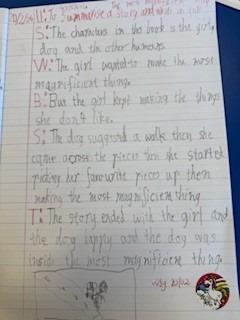 The most magnificent thing
L.I: To Summarise a story and
S: The characters in the book is the girl,
dog and the other humans.
W: The girl wanted to make the most
magnificent thing.
B: But the girl kept making the things
she don't like.
S: The dog suggesed a walk then she
came across the pieces then she started
picking her favourite pieces up then
making the most magnificient thing
T: The story ended with the girl and
the dog happy and the dog was
inside the most magnificient thing.